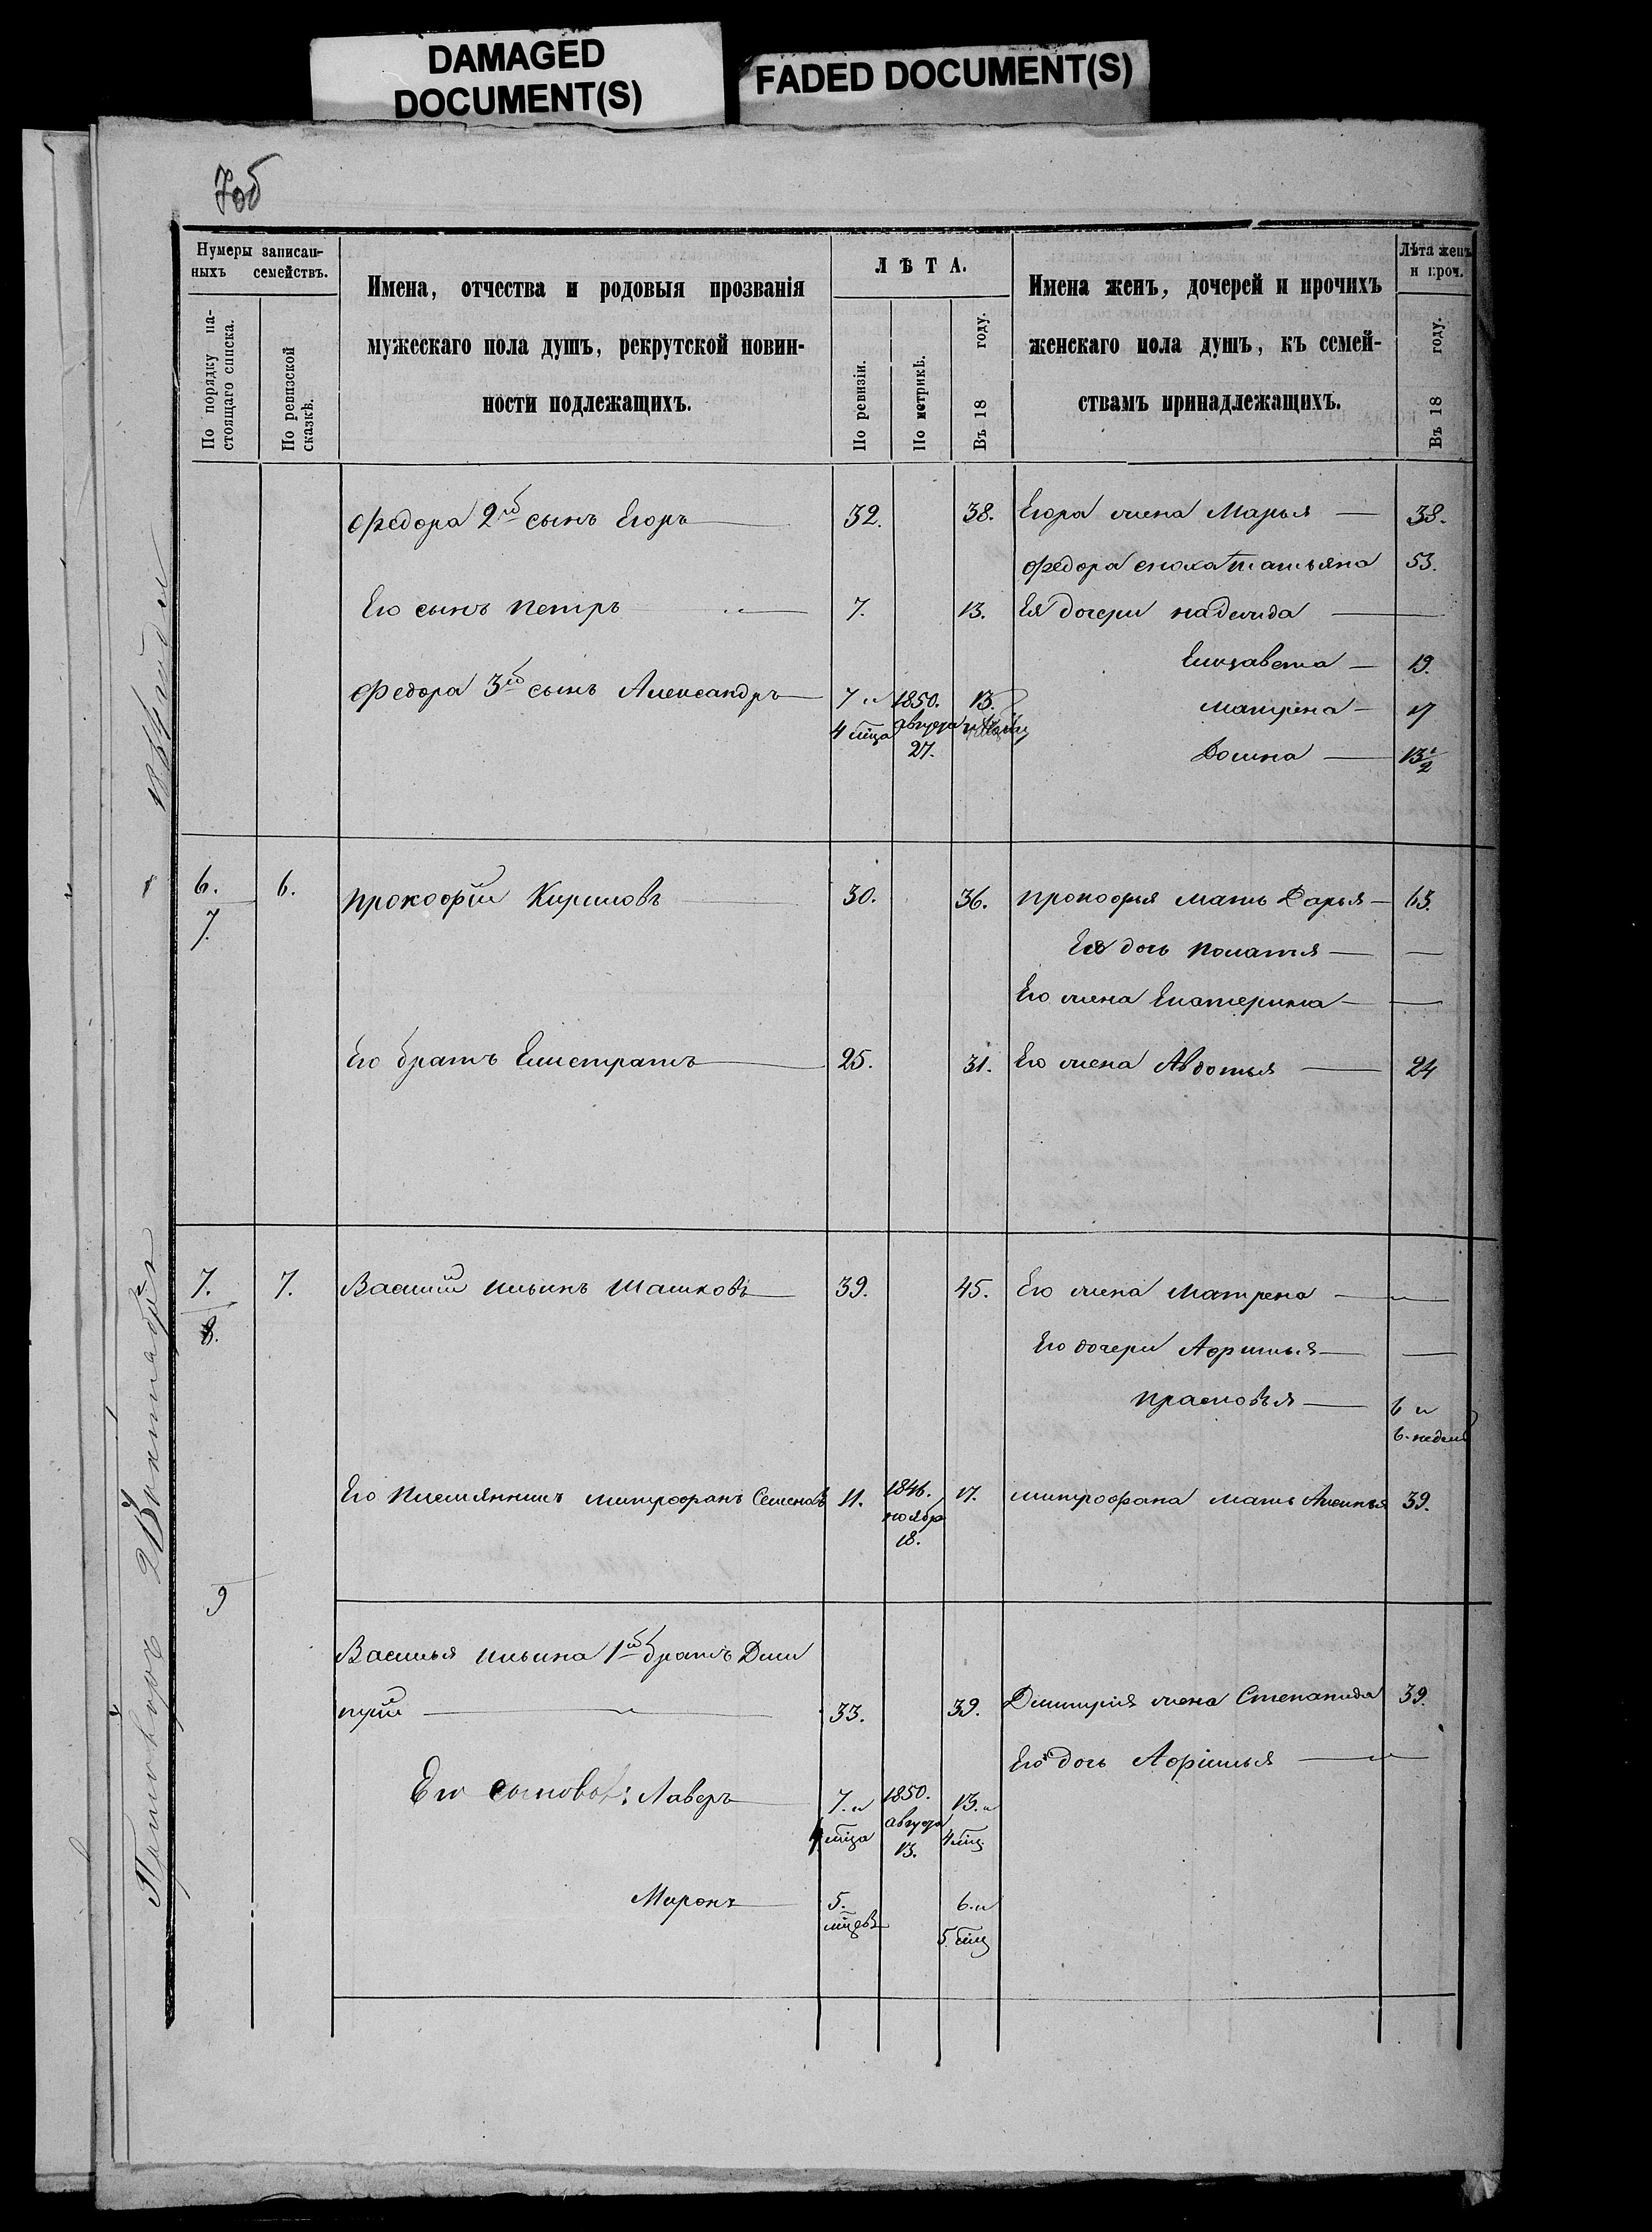 DAMAGED
DOCUMENT(S)
FADED DOCUMENT(S)
7об
Нумеры записан-
ныхъ семействъ.
По порядку на-
стоящаго списка.
По ревизской
сказкѣ.
Имена, отчества и родовыя прозванія
мужескаго пола душъ, рекрутской повин-
ности подлежащихъ.
ЛѢТА.
По ревизіи.
По метрикѣ.
Въ 18 году.
Имена женъ, дочерей и прочихъ
женскаго пола душъ, къ семей-
ствамъ принадлежащихъ.
Лѣта женъ
и проч.
Въ 18 году.
Федора 2й сынъ Егоръ 32. 38. Егора жена Марья 38.
Федора сноха Татьяна 53.
Его сынъ Петръ 7. 13. Ея дочери Надежда
Елизавета 19.
Федора 3й сынъ Александръ 7 и 1850. 13. Матрена 17
4 мца августа
27. Домна 13 1/2
6. 6. Прокофій Кириловъ 30. 36. Прокофья мать Дарья 63.
7. Ея дочь Пелагія
Его жена Екатерина
Его братъ Елистратъ 25. 31. Его жена Авдотья 24
7. 7. Василій Ильинъ Машковъ 39. 45. Его жена Матрена
8. Его дочери Афимья
Прасковья 6 и
6. недель
Его племянникъ Митрофанъ Семеновъ 11. 1846. 17. Митрофана мать Аксинья 39.
ноября
18.
9
Василья Ильина 1й братъ Дми
трій 33. 39. Димитрія жена Степанида 39.
Его дочь Афимья
Его сыновья: Лаверъ 7. и 1850. 13. и
4 мца августа 4 мц
13.
Миронъ 5. 6. и
мцевъ 5 мц